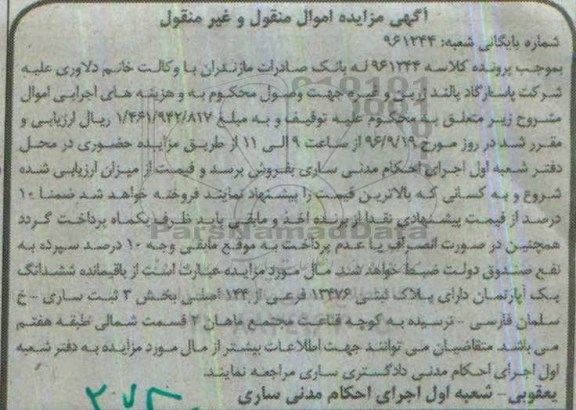 آگهی مزایده اموال منقول و غیر منقول
شماره بایگانی شعبه: ۹۶۱۲۴۴
بموجب پرونده کلاسه ۹۶۱۲۴۴ له بانک صادرات مازندران با وکالت خانم دلاوری علیه
شرکت پاسارگاد پالند زرین و غیره جهت وصول محکوم به و هزینه های اجرایی اموال
مشروح زیر متعلق به محکوم علیه توقیف و به مبلغ ۱/۴۶۱/۹۴۲/۸۱۷ ریال ارزیابی و
مقرر شد در روز مورخ ۹۶/۹/۱۹ از ساعت ۹ الی ۱۱ از طریق مزایده حضوری در محل
دفتر شعبه اول اجرای احکام مدنی ساری بفروش برسد و قیمت از میزان ارزیابی شده
شروع و به کسانی که بالاترین قیمت را پیشنهاد نمایند فروخته خواهد شد ضمنا ۱۰
درصد از قیمت پیشنهادی نقدا از برنده اخذ و مابقی باید ظرف یکماه پرداخت گردد
همچنین در صورت انصراف یا عدم پرداخت به موقع مابقی وجه ۱۰ درصد سپرده به
نفع صندوق دولت ضبط خواهد شد مال مورد مزایده عبارت است از باقیمانده ششدانگ
یک آپارتمان دارای پلاک ثبتی ۱۳۴۷۶ فرعی از ۱۴۴ اصلی بخش ۳ ثبت ساری - خ
سلمان فارسی - نرسیده به کوچه قناعت مجتمع ماهان ۲ قسمت شمالی طبقه هفتم
می باشد متقاضیان می توانند جهت اطلاعات بیشتر از مال مورد مزایده به دفتر شعبه
اول اجرای احکام مدنی دادگستری ساری مراجعه نمایند.
یعقوبی - شعبه اول اجرای احکام مدنی ساری
ParsNamadData